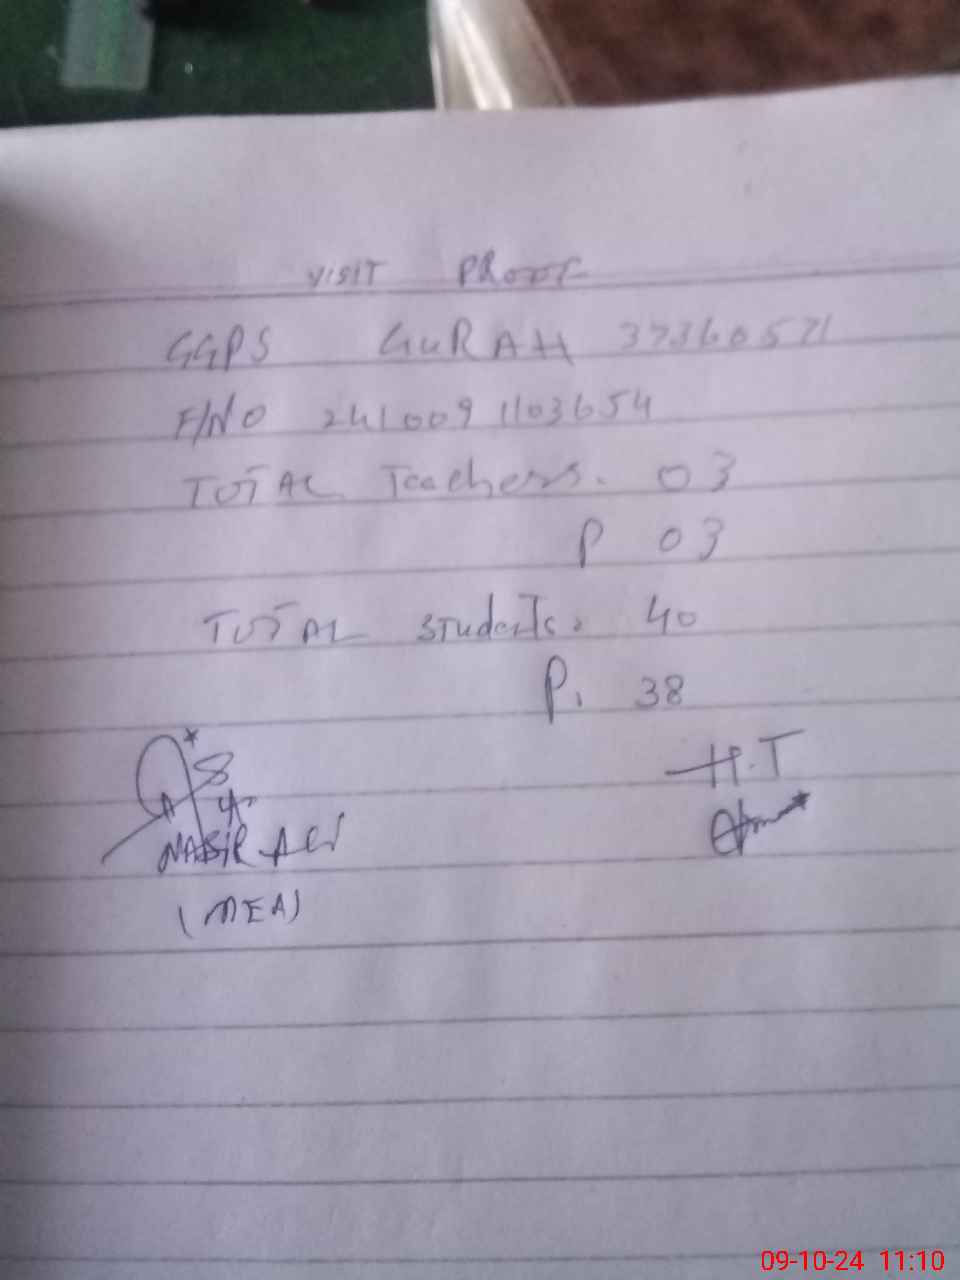 VISIT PROOF
GGPS GURAH 37360571
F/NO 2410091103654
TOTAL Teachers. 03
P 03
TOTAL Students. 40
P. 38
H.T
NASIR ALI
(MEA)
09-10-24 11:10